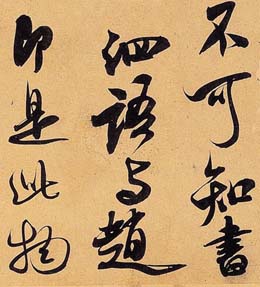 不可知書
泗語与趙
即是此物